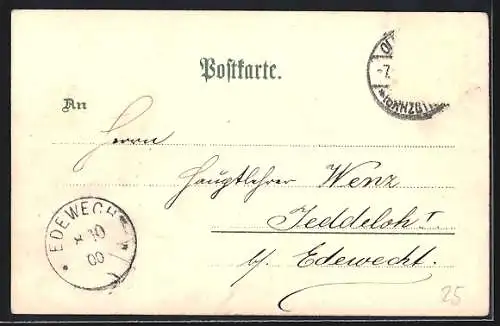 Postkarte.
An
Herrn
Hauptlehrer Wenz
Jeddeloh I
b/. Edewecht.
EDEWECH
10
00
25